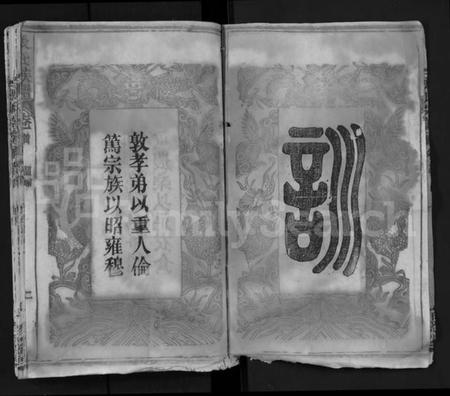 訓
敦孝弟以重人倫
篤宗族以昭雍穆
FamilySearch